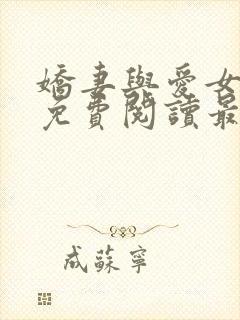 嬌妻與愛女
免費閱讀最
成蘇寧